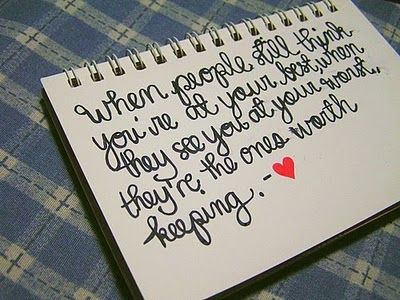 when people still think
you're at your best, when
they see you at your worst,
they're the ones worth
keeping. - ♥